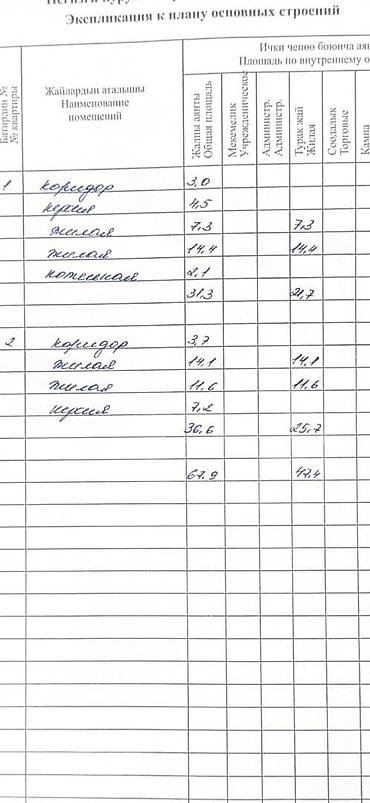 Экспликация к плану основных строений
Ички ченөө боюнча
Площадь по внутреннему
№ квартиры
Жайлардын аталышы
Наименование
помещений
Жалпы аянты
Общая площадь
Мекемелик
Учрежденическое
Администр.
Администр.
Турак жай
Жилая
Соодалык
Торговые
1 коридор 3,0
кухня 4,5
жилая 7,3 7,3
жилая 14,4 14,4
котельная 2,1
31,3 21,7
2 коридор 3,7
жилая 14,1 14,1
жилая 11,6 11,6
кухня 7,2
36,6 25,7
67,9 47,4